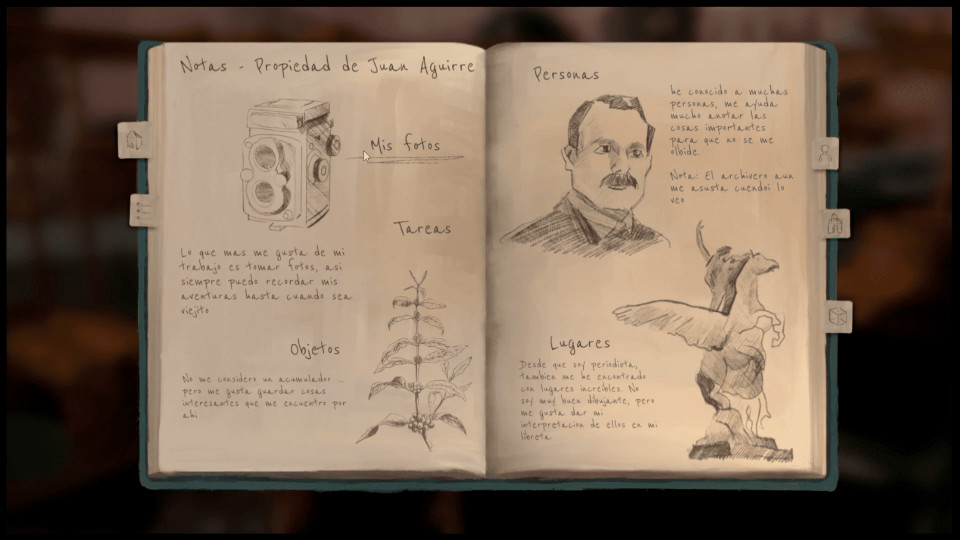 Notas - Propiedad de Juan Aguirre
Mis fotos
Tareas
Lo que mas me gusta de mi
trabajo es tomar fotos, asi
siempre puedo recordar mis
aventuras hasta cuando sea
viejito
Objetos
No me considero un acumulador ...
pero me gusta guardar cosas
interesantes que me encuentro por
ahi
Personas
he conocido a muchas
personas, me ayuda
mucho anotar las
cosas importantes
para que no se me
olbide.
Nota: El archivero aun
me asusta cuendoi lo
veo
Lugares
Desde que soy periodista,
tambien me he encontrado
con lugares increibles. No
soy muy buen dibujante, pero
me gusta dar mi
interpretacion de ellos en mi
libreta